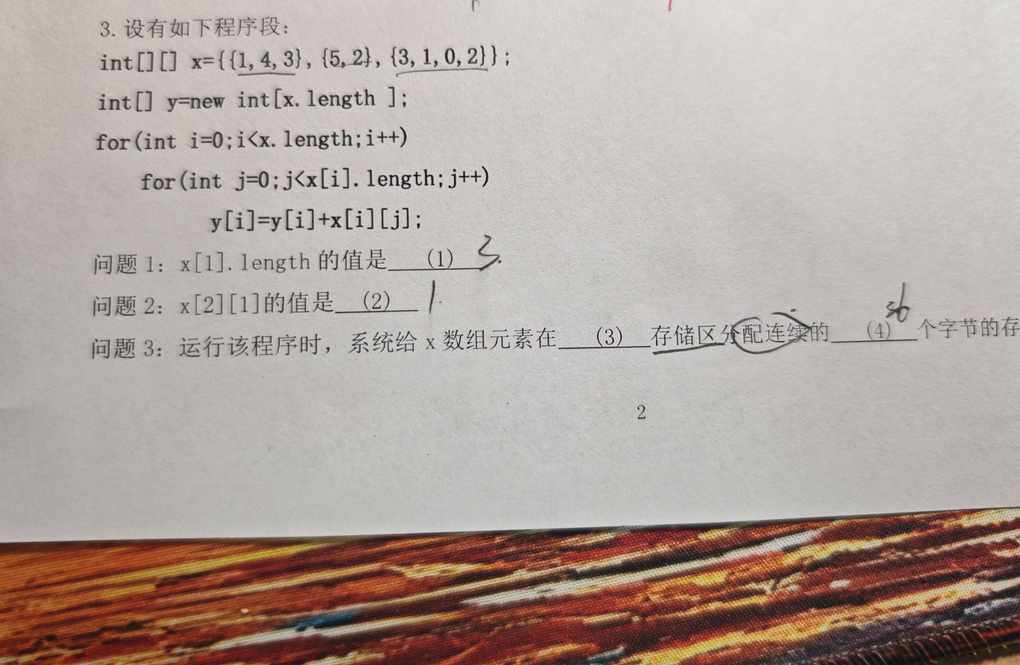 3. 设有如下程序段:
int[][] x={{1,4,3},{5,2},{3,1,0,2}};
int[] y=new int[x.length ];
for(int i=0;i<x.length;i++)
for(int j=0;j<x[i].length;j++)
y[i]=y[i]+x[i][j];
问题 1: x[1].length 的值是 (1) 3.
问题 2: x[2][1]的值是 (2) 1
问题 3: 运行该程序时, 系统给 x 数组元素在 (3) 存储区分配连续的 (4) 36 个字节的存
2